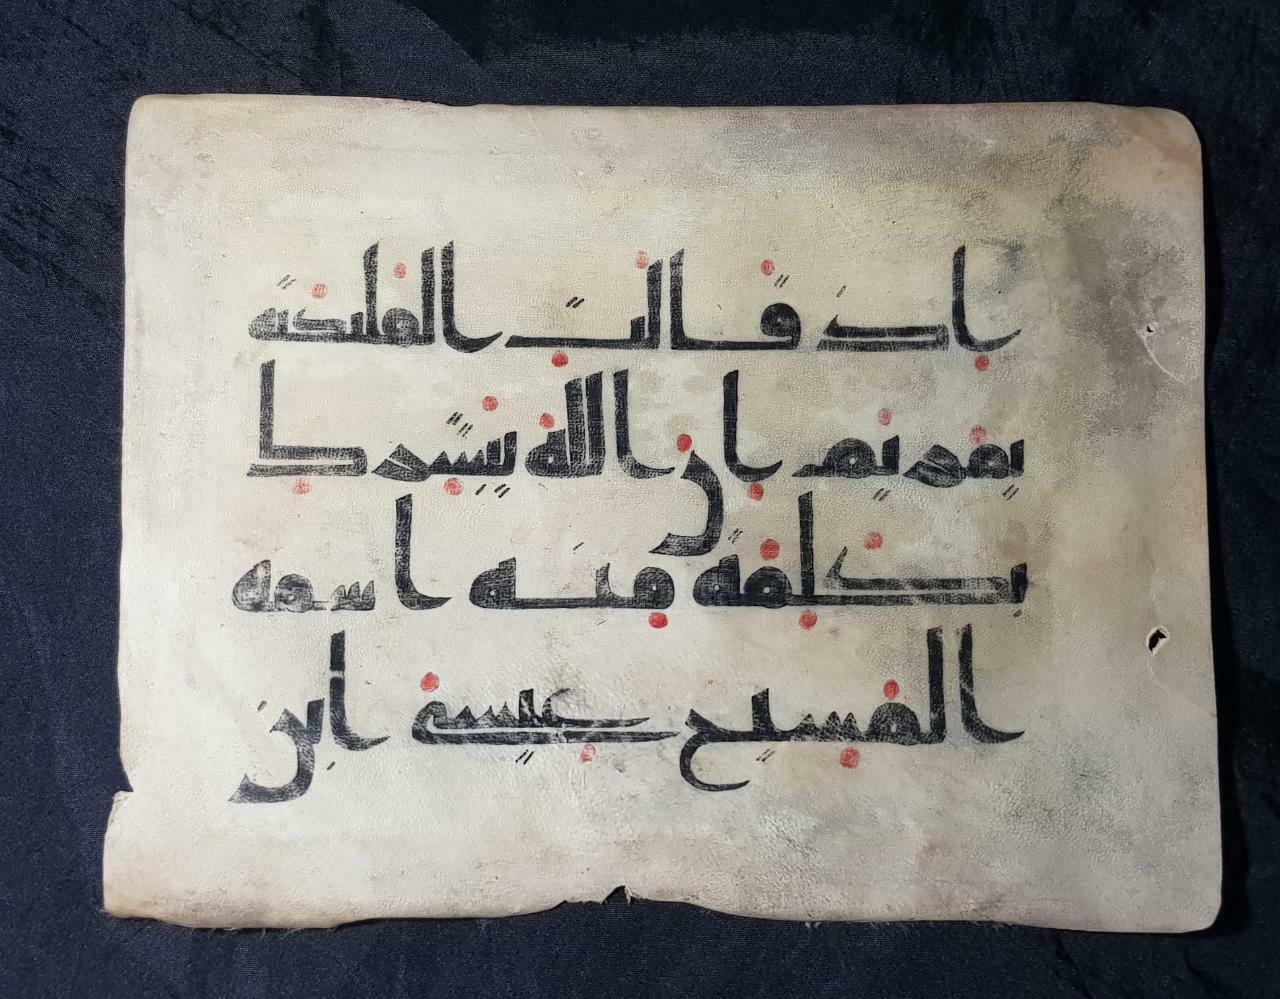 اذ قالت الملئكة
يمريم ان الله يبشرك
بكلمة منه اسمه
المسيح عيسى ابن